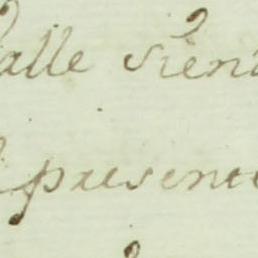 alle sien
presente